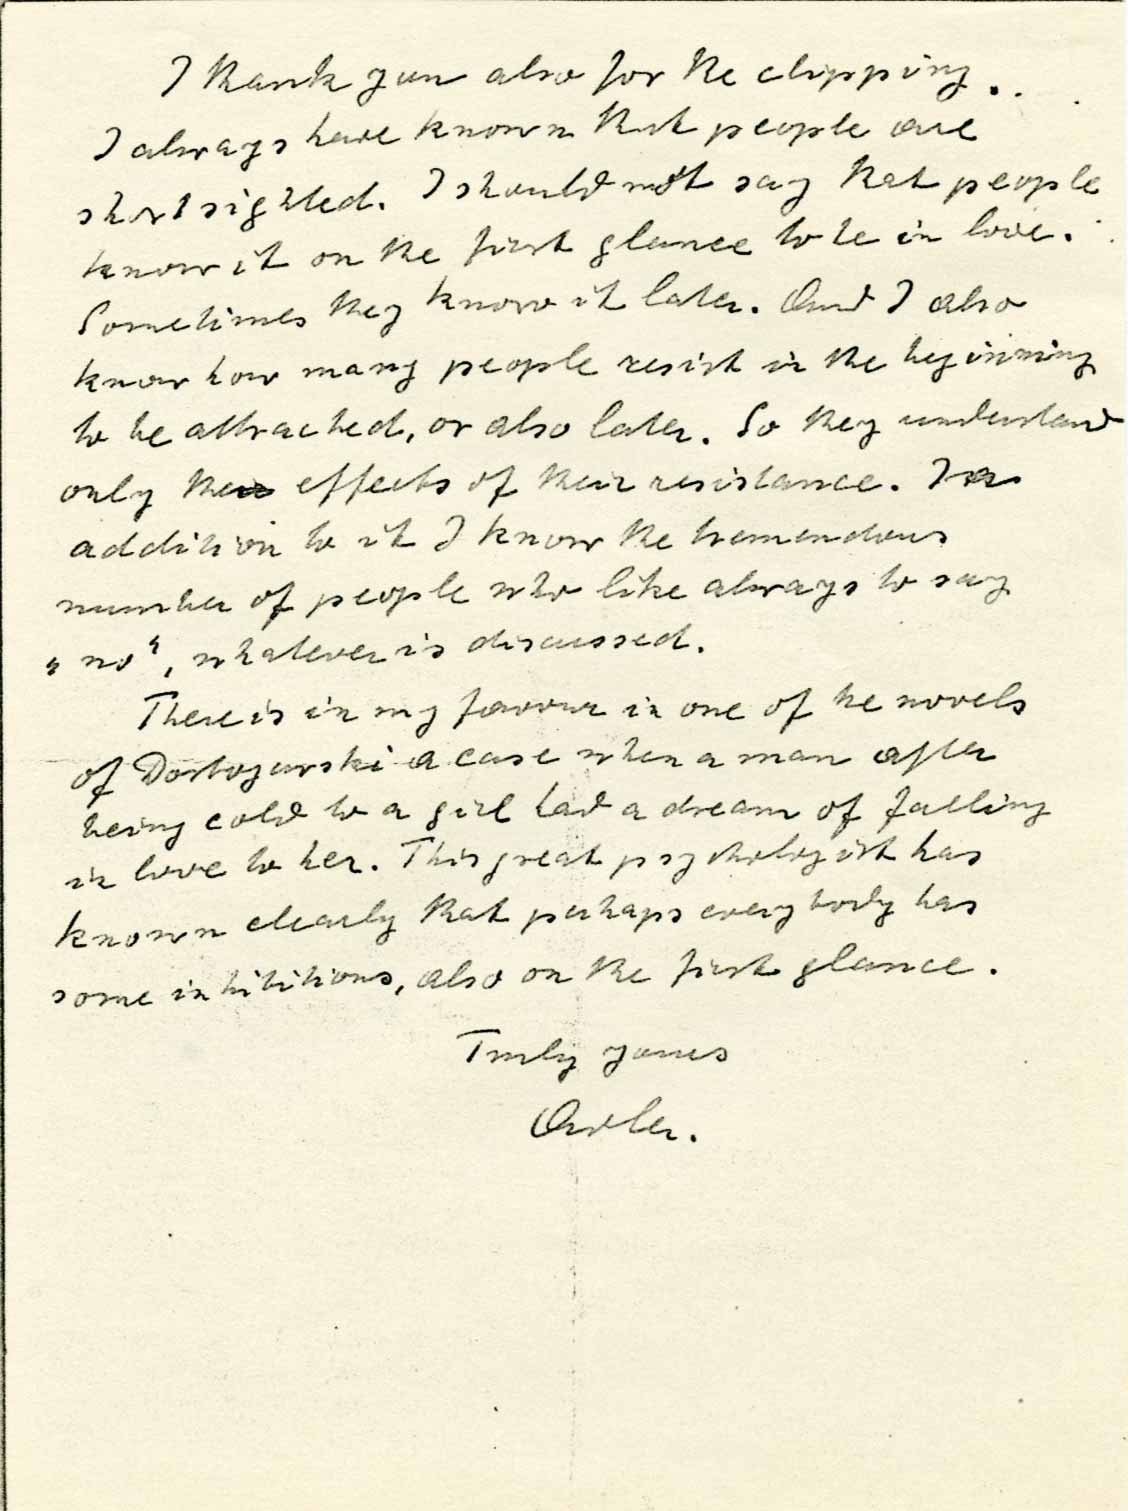 I thank you also for the clipping.
I always have known that people are
shortsighted. I should not say that people
know it on the first glance to be in love.
Sometimes they know it later. And I also
know how many people resist in the beginning
to be attracted, or also later. So they understand
only the effects of their resistance. In
addition to it I know the tremendous
number of people who like always to say
„no“, whatever is discussed.
There is in my favour in one of he novels
of Dostojewski a case when a man after
being cold to a girl had a dream of falling
in love to her. This great psychologist has
known clearly that perhaps everybody has
some inhibitions, also on the first glance.
Truly yours
Adler.